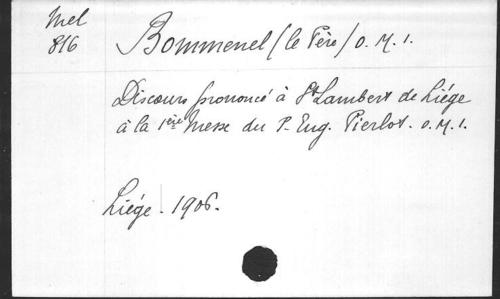 Mel
816
Bommenel (le Père) O. M. I.
Discours prononcé à St Lambert de Liége
à la 1ère Messe du P. Eug. Pierlot. O. M. I.
Liége. 1906.